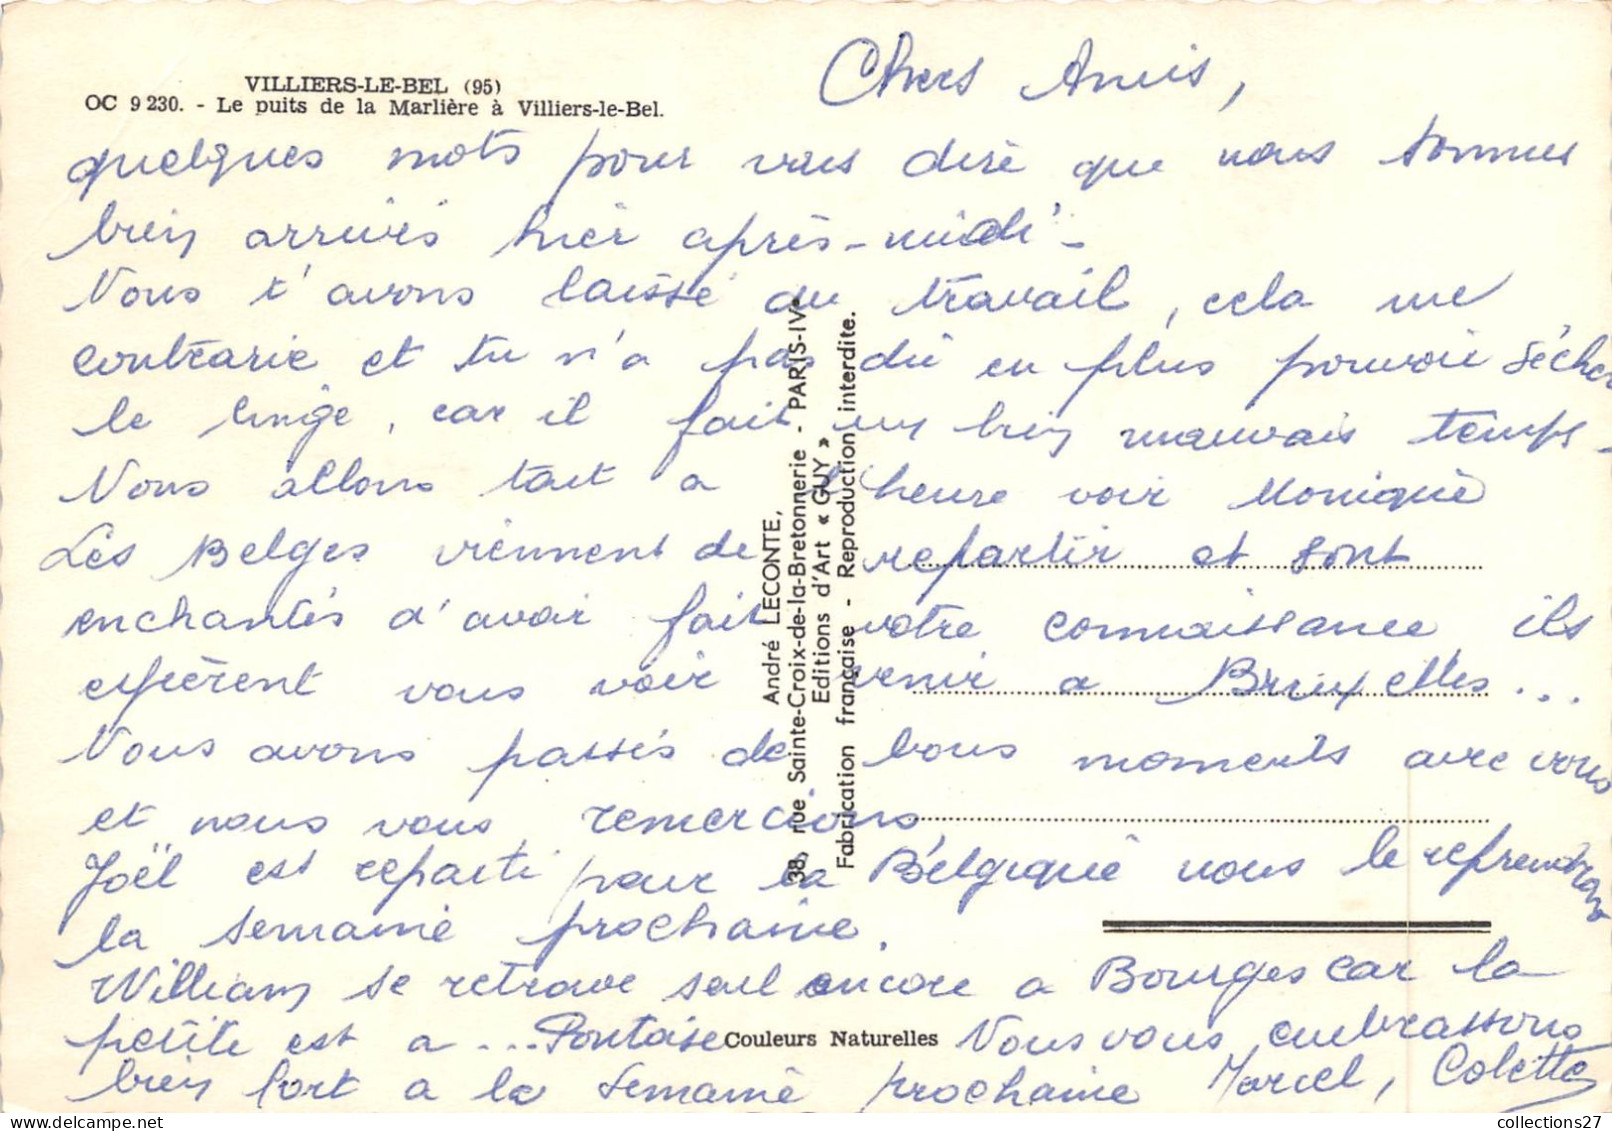 VILLIERS-LE-BEL (95)
OC 9 230. - Le puits de la Marlière à Villiers-le-Bel.
Chers Amis,
quelques mots pour vous dire que nous sommes
bien arrivés hier après-midi -
Nous t'avons laissé du travail, cela me
contrarie et tu n'a pas dû en plus pouvoir sécher
le linge, car il fait un bien mauvais temps -
Nous allons tout a l'heure voir Monique
Les Belges viennent de repartir et sont
enchantés d'avoir fait votre connaissance, ils
espèrent vous voir venir a Bruxelles...
Nous avons passés de bons moments avec vous
et nous vous remercions
Joël est reparti pour la Belgique nous le reprendrons
la semaine prochaine.
William se retrouve seul encore a Bourges car la
petite est a ... Pontoise Nous vous embrassons
bien fort a la semaine prochaine Marcel, Colette
André LECONTE,
38, rue Sainte-Croix-de-la-Bretonnerie - PARIS-IVe
Editions d'Art « GUY »
Fabrication française - Reproduction interdite.
Couleurs Naturelles
collections27